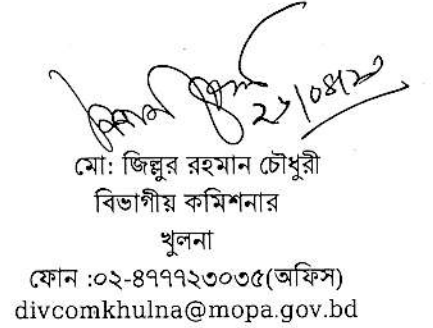 মো: জিল্লুর রহমান চৌধুরী
বিভাগীয় কমিশনার
খুলনা
ফোন :০২-৪৭৭৭২৩০৩৫(অফিস)
divcomkhulna@mopa.gov.bd